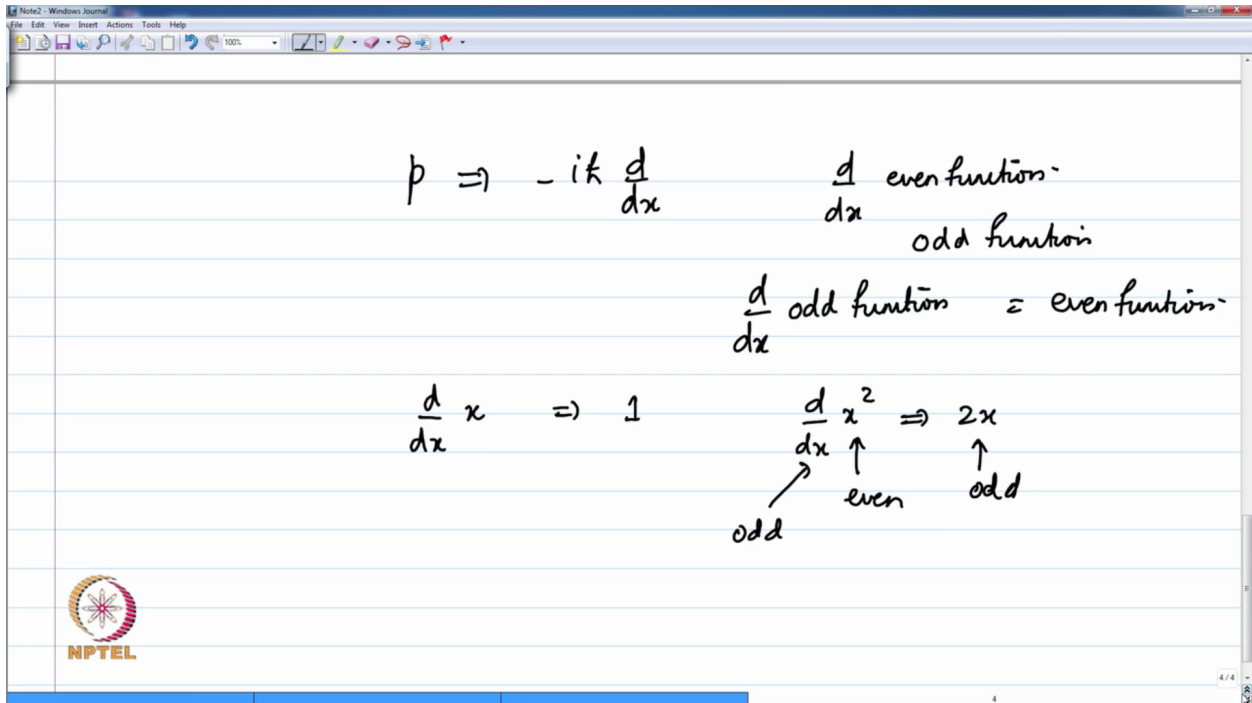 Note2 - Windows Journal
File Edit View Insert Actions Tools Help
100%
p ⇒ - iħ d/dx
d/dx even function.
odd function
d/dx odd function = even function.
d/dx x ⇒ 1
d/dx x² ⇒ 2x
odd
even
odd
NPTEL
4/4
4